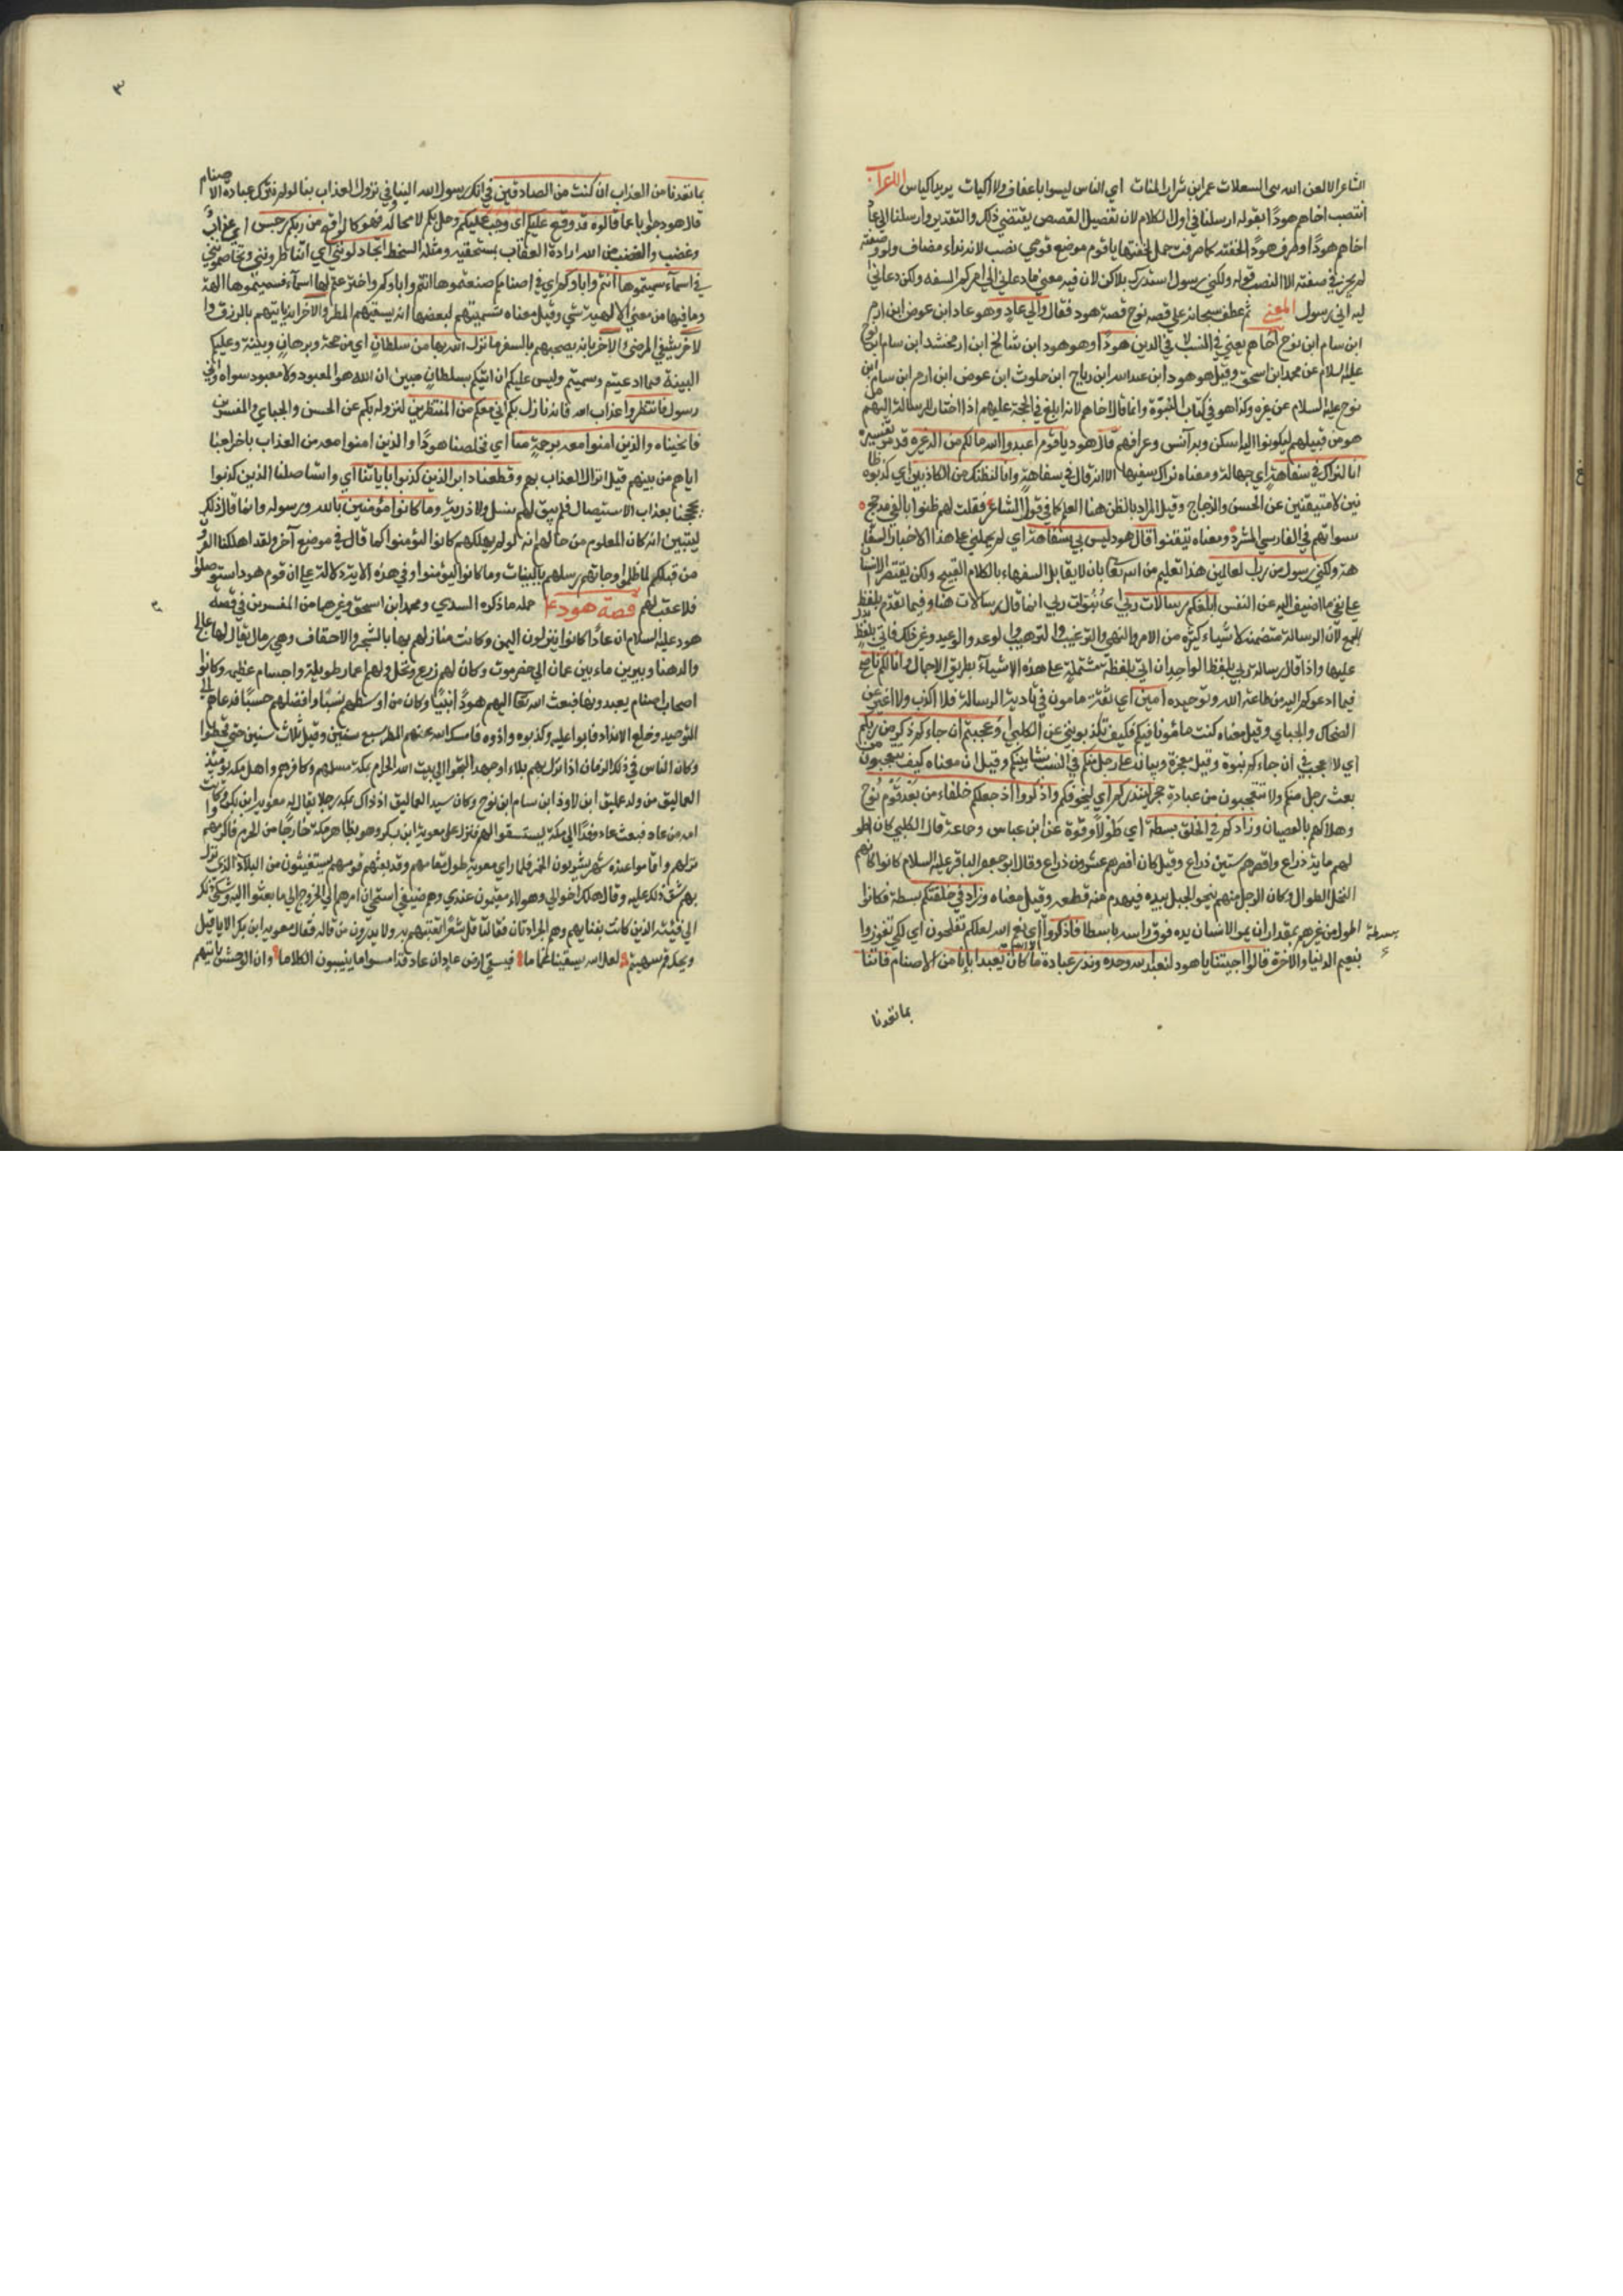 الشاعر الا لعن الله بنى السعلات عمرابن شرار النات اي الناس ليسوا باعفاف ولا اكيات يريد اكياس الاعراب
انتصب اخاهم هودًا بقوله ارسلنا في اول الكلام لان تفصيل القصص يقتضي ذلك والتقدير وارسلنا الى عاد
اخاهم هودًا وصرف هودًا لخفته كما صرفت جمل لخفتها يا قوم موضع قومي نصب لانه نداء مضاف ولو وصفته
لم يجز في صفته الا النصب قوله ولكني رسول استدرك بلاكن لان فيه معنى ما دعاني الى امركم السفه ولكن دعاني
ليه اني رسول المعنى ثم عطف سبحانه على قصه نوح قصة هود فقال والى عاد وهو عاد ابن عوص ابن ارم
ابن سام ابن نوح اخاهم يعني في النسب لا في الدين هودًا وهو هود ابن شالخ ابن ارفخشد ابن سام ابن نوح
عليه السلام عن محمد ابن اسحق وقيل هو هود ابن عبدالله ابن رباح ابن حلوث ابن عوص ابن ارم ابن سام ابن
نوح عليه السلام عن غيره وكذا هو في كتاب النبوة وانما قال اخاهم لانه ابلغ في الحجة عليهم اذا اختار للرسالة اليهم من
هو من قبيلهم ليكونوا اليه اسكن وبه آنس وعرافهم قال هود يا قوم اعبدوا الله ما لكم من اله غيره قد مر تفسيره
انا لنراك في سفاهة اي جهالة ومعناه نراك سفيها الا انه قال في سفاهة وانا لنظنك من الكاذبين اي كذبوه ظا
نين لا متيقنين عن الحسن والزجاج وقيل المراد بالظن هنا العلم كما في قول الشاعر فقلت لهم ظنوا بالفي مدجج
سراتهم في الفارسي المسرد ومعناه تيقنوا قال هود ليس بي سفاهة اي لم يحملني على هذا الاخبار السفا
هة ولكني رسول من رب العالمين هذا تعليم من الله تعا بان لا يقابل السفهاء بالكلام القبيح ولكن يقتصر الانسان
على نفي ما اضيف اليه عن النفس ابلغكم رسالات ربي انما قال رسالات هنا وفيما تقدم بلفظ
الجمع لان الرسالة متضمنة لاشياء كثيرة من الامر والنهي والترغيب والترهيب والوعد والوعيد وغير ذلك فاتى بلفظ
عليها واذا قال رسالة ربي بلفظ الواحد اتى بلفظة مشتملة على هذه الاشياء بطريق الاجمال وانا لكم ناصح
فيما ادعوكم اليه من طاعة الله وتوحيده امين اي ثقة مامون في تادية الرسالة فلا اكذب ولا اغير عن
الضحاك والجباي وقيل معناه كنت مامونا فيكم فكيف تكذبونني عن الكلبي اوعجبتم ان جاءكم ذكر من ربكم
اي لا عجب في ان جاءكم نبوة وقيل معجزة وبيان على رجل منكم في النسب نشا بينكم وقيل ان معناه كيف تتعجبون من
بعث رجل منكم ولا تتعجبون من عبادة حجر لينذركم اي ليخوفكم واذكروا اذ جعلكم خلفاء من بعد قوم نوح
وهلاكهم بالعصيان وزادكم في الخلق بسطة اي طولًا وقوة عن ابن عباس وجماعة قال الكلبي كان اطو
لهم ماية ذراع واقصرهم ستين ذراع وقيل كان اقصرهم عشرون ذراع وقال ابو جعفر الباقر عليه السلام كانوا كانهم
النخل الطوال وكان الرجل منهم ينحو الجبل بيده فيهدم منه قطعه وقيل معناه وزاد في خلقتكم بسطة فكانوا
اطول من غيرهم بمقدار ان يمد الانسان يده فوق راسه باسطا فاذكروا الآء اي نعم الله لعلكم تفلحون اي لكي تفوزوا
بسطة
بنعيم الدنيا والاخرة قالوا اجيتنا يا هود لنعبد الله وحده ونذر عبادة ما كان يعبد اباؤنا من الاصنام فاتنا
بما تعدنا
٣
بما تعدنا من العذاب ان كنت من الصادقين في انك رسول الله الينا وفي نزول العذاب بنا لو لم نترك عبادة الاصنام
قال هود جوابا عما قالوه قد وقع عليكم اي وجب عليكم وحل بكم لا محالة فهو كالواقع من ربكم رجس اي عذاب
وغضب والغضب من الله ارادة العقاب بمستحقيه ومثله السخط اتجادلونني اي اتناظرونني وتخاصمونني
في اسمآء سميتموها انتم واباوكم اي في اصنام صنعتموها انتم واباوكم واخترعتم لها اسمآء فسميتموها الهة
وما فيها من معنى الالهية شي وقيل معناه تسميتهم لبعضها انه يسقيهم المطر والاخر انه ياتيهم بالرزق وا
لاخر يشفي المرضى والاخر بانه يصحبهم بالسفر ما نزل الله بها من سلطان اي من حجة وبرهان وبينة وعليكم
البينة فيما ادعيتم وسميتم وليس عليكم ان اتيكم بسلطان مبين ان الله هو المعبود ولا معبود سواه واني
رسوله فانتظروا عذاب الله فانه نازل بكم اني معكم من المنتظرين لنزوله بكم عن الحسن والجباي والمفسرين
فانجيناه والذين امنوا معه برحمة منا اي فخلصنا هودًا والذين امنوا معه من العذاب باخراجنا
اياهم من بينهم قبل انزال العذاب بهم وقطعنا دابر الذين كذبوا باياتنا اي واستاصلنا الذين كذبوا
بحججنا بعذاب الاستيصال فلم يبق لهم نسل ولا ذرية وما كانوا مؤمنين بالله ورسوله وانما قال ذلك
ليتبين انه كان المعلوم من حالهم انه لو لم يهلكهم كانوا ليؤمنوا كما قال في موضع آخر ولقد اهلكنا القرون
من قبلكم لما ظلموا وجاتهم رسلهم بالبينات وما كانوا ليؤمنوا وفي هذه الاية دلالة على ان قوم هود استوصلوا
فلا عقب لهم قصة هود ع جملة ما ذكره السدي ومحمد ابن اسحق وغيرهما من المفسرين في قصة
هود عليه السلام ان عادًا كانوا ينزلون اليمن وكانت منازلهم بها بالشجر والاحقاف وهي رمال يقال لها عالج
والدهنا ويبرين ما بين عمان الى حضرموت وكان لهم زرع ونخل ولهم اعمار طويلة واجسام عظيمه وكانوا
اصحاب اصنام يعبدونها فبعث الله تعا اليهم هودًا نبيًا وكان من اوسطهم نسبًا وافضلهم حسبًا فدعاهم الى
التوحيد وخلع الانداد فابوا عليه وكذبوه واذوه فامسك الله عنهم المطر سبع سنين وقيل ثلاث سنين حتى قحطوا
وكان الناس في ذلك الزمان اذا نزل بهم بلاء او جهد التجوا الى بيت الله الحرام بمكة مسلمهم وكافرهم واهل مكة يوميذ
العماليق من ولد عمليق ابن لاوذ ابن سام ابن نوح وكان سيد العماليق اذ ذاك بمكة رجلا يقال له معوية ابن بكر وكانت
امه من عاد فبعث عاد وفدًا الى مكة ليستسقوا لهم فنزل على معوية ابن بكر وهو بظاهر مكة خارجًا من الحرم فاكرمهم
نزلهم واقاموا عنده شهر يشربون الخمر فلما راى معوية طول مقامهم وقد بعثهم قومهم يستغيثون من البلاء الذي نزل
بهم شق ذلك عليه وقال هلك اخوالي وهولاء مقيمون عندي وهم ضيفي استحي ان امرهم الى الخروج الى ما بعثوا اليه وشكى ذلك
الى قينتيه اللتين كانتا تغنيانهم وهم الجرادتان فقالتا قل شعرًا نغنيهم به ولا يدرون من قاله فقال معوية ابن بكر الا يا قيل
ويحك قم فهينم لعل الله يسقينا غماما فيسقي ارض عاد ان عاد قد امسوا ما يبينون الكلاما وان الوحش ياتيهم